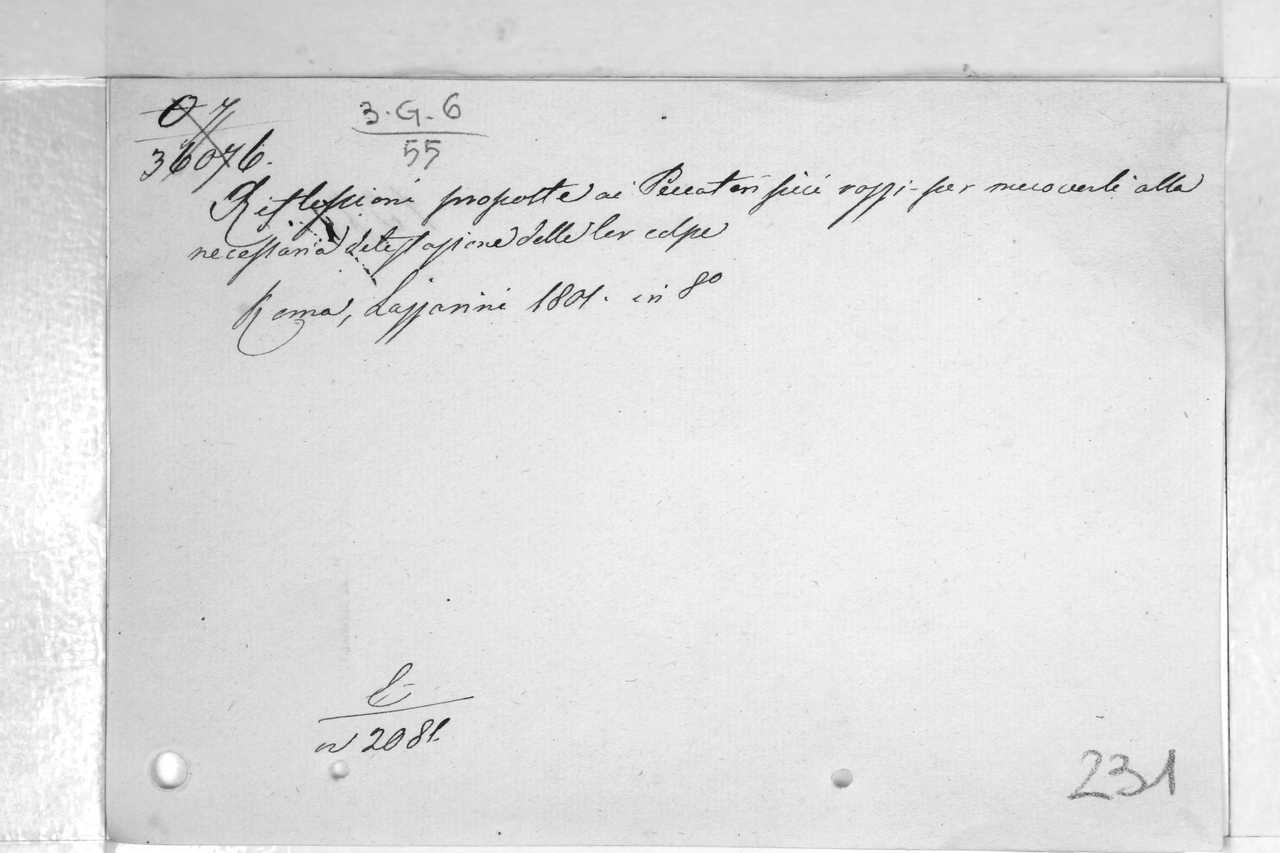 O 7
36076.
3·G·6
55
Riflessioni proposte ai Peccatori più rozzi per muoverli alla
necessaria detestazione delle lor colpe
Roma, Lazzarini 1801. in 8º
E
n 2081.
231